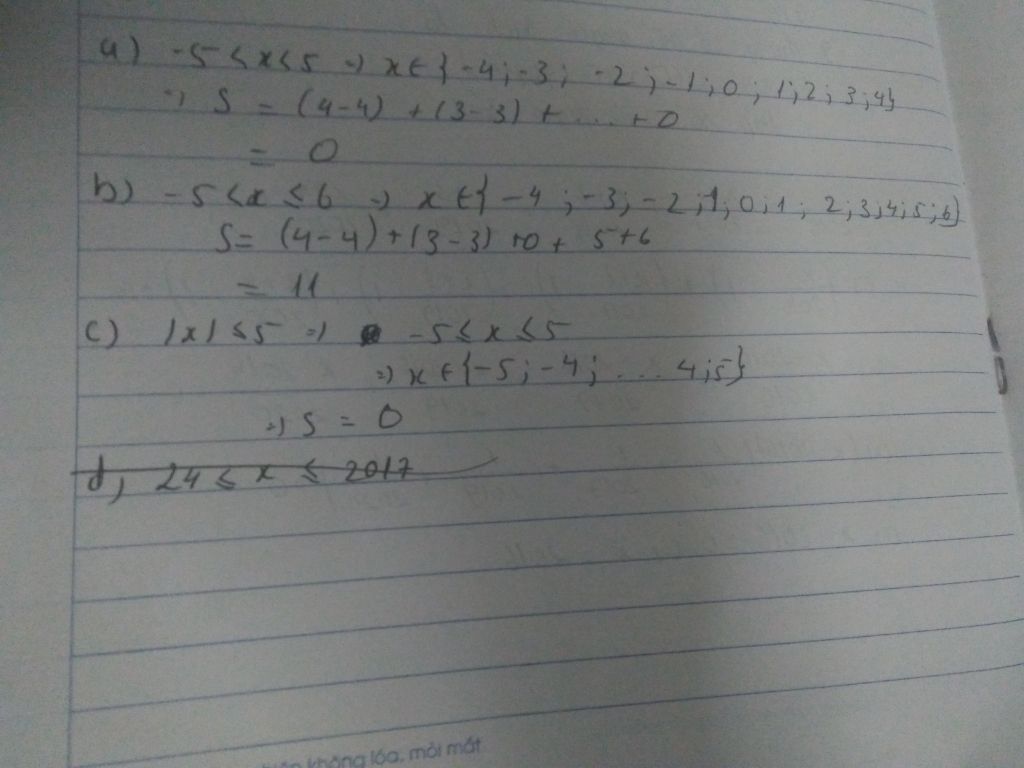 a) -5 < x < 5 => x ∈ { -4 ; -3 ; -2 ; -1 ; 0 ; 1 ; 2 ; 3 ; 4}
=> S = (4-4) + (3-3) + ... + 0
= 0
b) -5 < x ≤ 6 => x ∈ { -4 ; -3 ; -2 ; 1 ; 0 ; 1 ; 2 ; 3 ; 4 ; 5 ; 6}
S = (4-4) + (3-3) + 0 + 5 + 6
= 11
c) |x| ≤ 5 => -5 ≤ x ≤ 5
=> x ∈ {-5 ; -4 ; ... 4 ; 5}
=> S = 0
d, 24 ≤ x ≤ 2017
không lóa, mỏi mắt